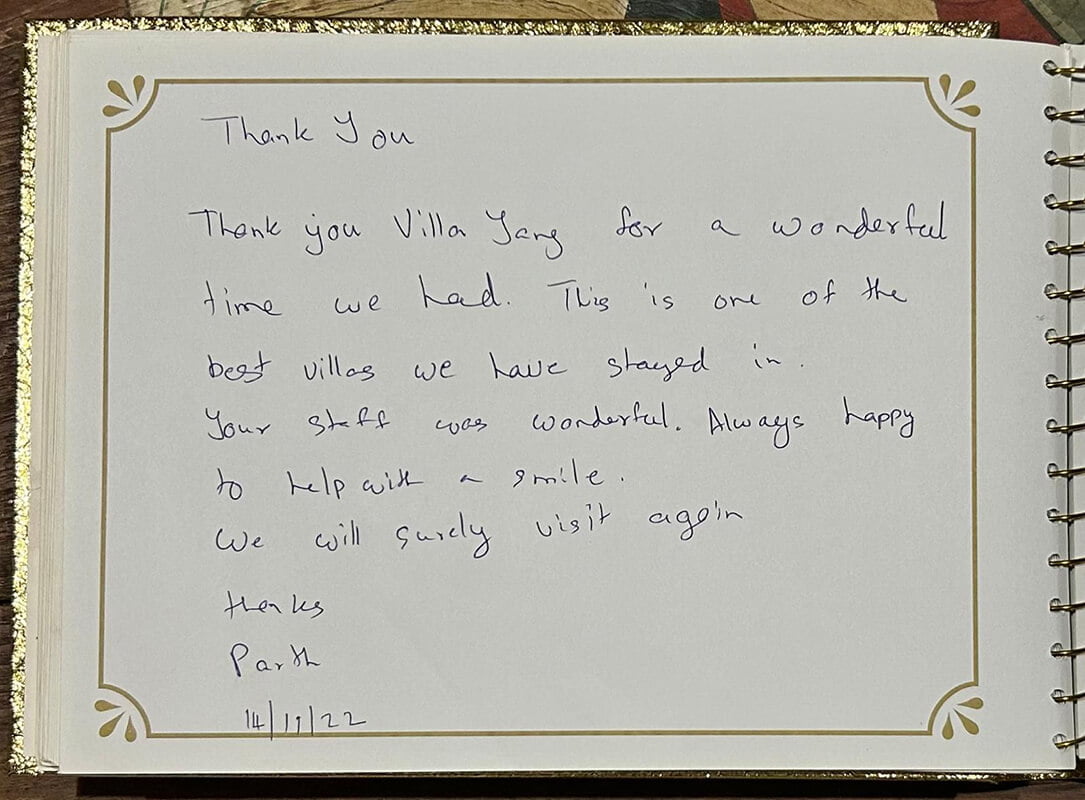 Thank You
Thank you Villa Yang for a wonderful
time we had. This is one of the
best villas we have stayed in.
Your staff was wonderful. Always happy
to help with a smile.
We will surely visit again
thanks
Parth
14/11/22